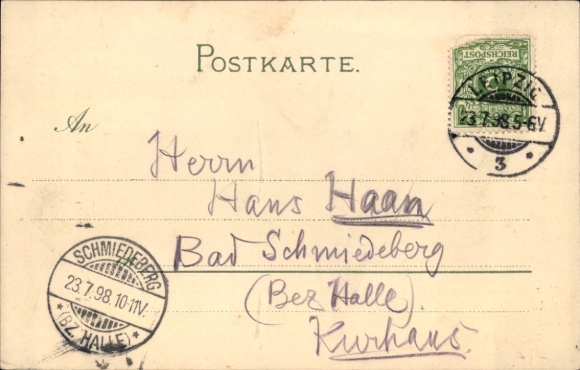 POSTKARTE.
REICHSPOST
LEIPZIG
23.7.98.5-6V.
* 3 *
An
Herrn
Hans Haan
Bad Schmiedeberg
(Bez Halle).
Kurhaus.
SCHMIEDEBERG
23.7.98.10-11V.
*(BZ. HALLE)*